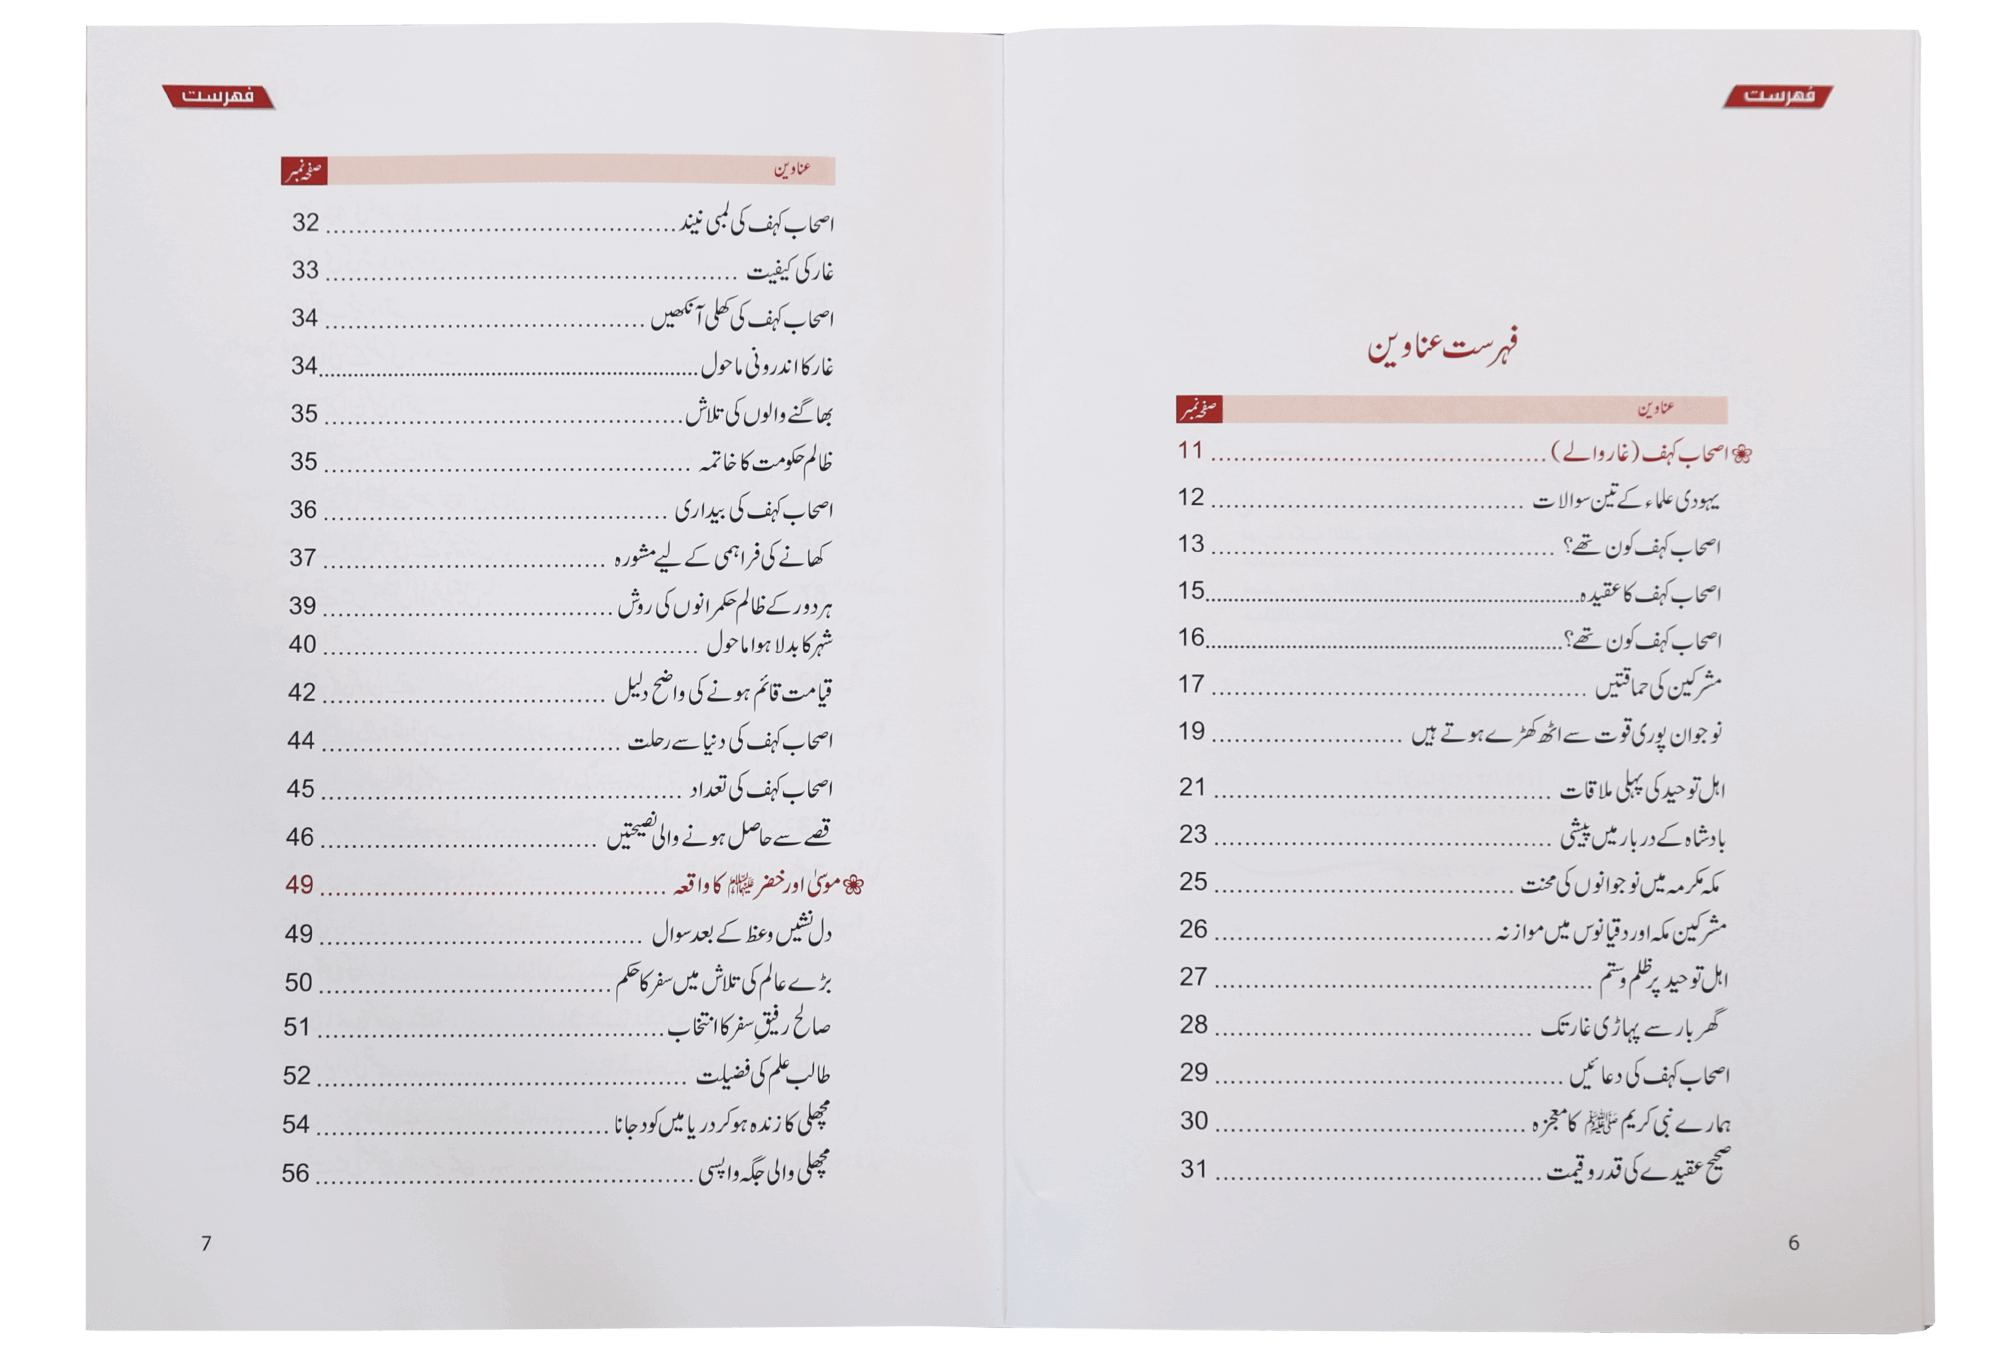 فہرست
فہرست عناوین
عناوین صفحہ نمبر
اصحاب کہف (غار والے) ........ 11
یہودی علماء کے تین سوالات ........ 12
اصحاب کہف کون تھے؟ ........ 13
اصحاب کہف کا عقیدہ ........ 15
اصحاب کہف کون تھے؟ ........ 16
مشرکین کی حماقتیں ........ 17
نوجوان پوری قوت سے اٹھ کھڑے ہوتے ہیں ........ 19
اہل توحید کی پہلی ملاقات ........ 21
بادشاہ کے دربار میں پیشی ........ 23
مکہ مکرمہ میں نوجوانوں کی محنت ........ 25
مشرکین مکہ اور دقیانوس میں موازنہ ........ 26
اہل توحید پر ظلم و ستم ........ 27
گھر بار سے پہاڑی غار تک ........ 28
اصحاب کہف کی دعائیں ........ 29
ہمارے نبی کریم ﷺ کا معجزہ ........ 30
صحیح عقیدے کی قدر و قیمت ........ 31
6
فہرست
عناوین صفحہ نمبر
اصحاب کہف کی لمبی نیند ........ 32
غار کی کیفیت ........ 33
اصحاب کہف کی کھلی آنکھیں ........ 34
غار کا اندرونی ماحول ........ 34
بھاگنے والوں کی تلاش ........ 35
ظالم حکومت کا خاتمہ ........ 35
اصحاب کہف کی بیداری ........ 36
کھانے کی فراہمی کے لیے مشورہ ........ 37
ہر دور کے ظالم حکمرانوں کی روش ........ 39
شہر کا بدلا ہوا ماحول ........ 40
قیامت قائم ہونے کی واضح دلیل ........ 42
اصحاب کہف کی دنیا سے رحلت ........ 44
اصحاب کہف کی تعداد ........ 45
قصے سے حاصل ہونے والی نصیحتیں ........ 46
موسیٰ اور خضر علیہما السلام کا واقعہ ........ 49
دل نشیں وعظ کے بعد سوال ........ 49
بڑے عالم کی تلاش میں سفر کا حکم ........ 50
صالح رفیقِ سفر کا انتخاب ........ 51
طالب علم کی فضیلت ........ 52
مچھلی کا زندہ ہو کر دریا میں کود جانا ........ 54
مچھلی والی جگہ واپسی ........ 56
7